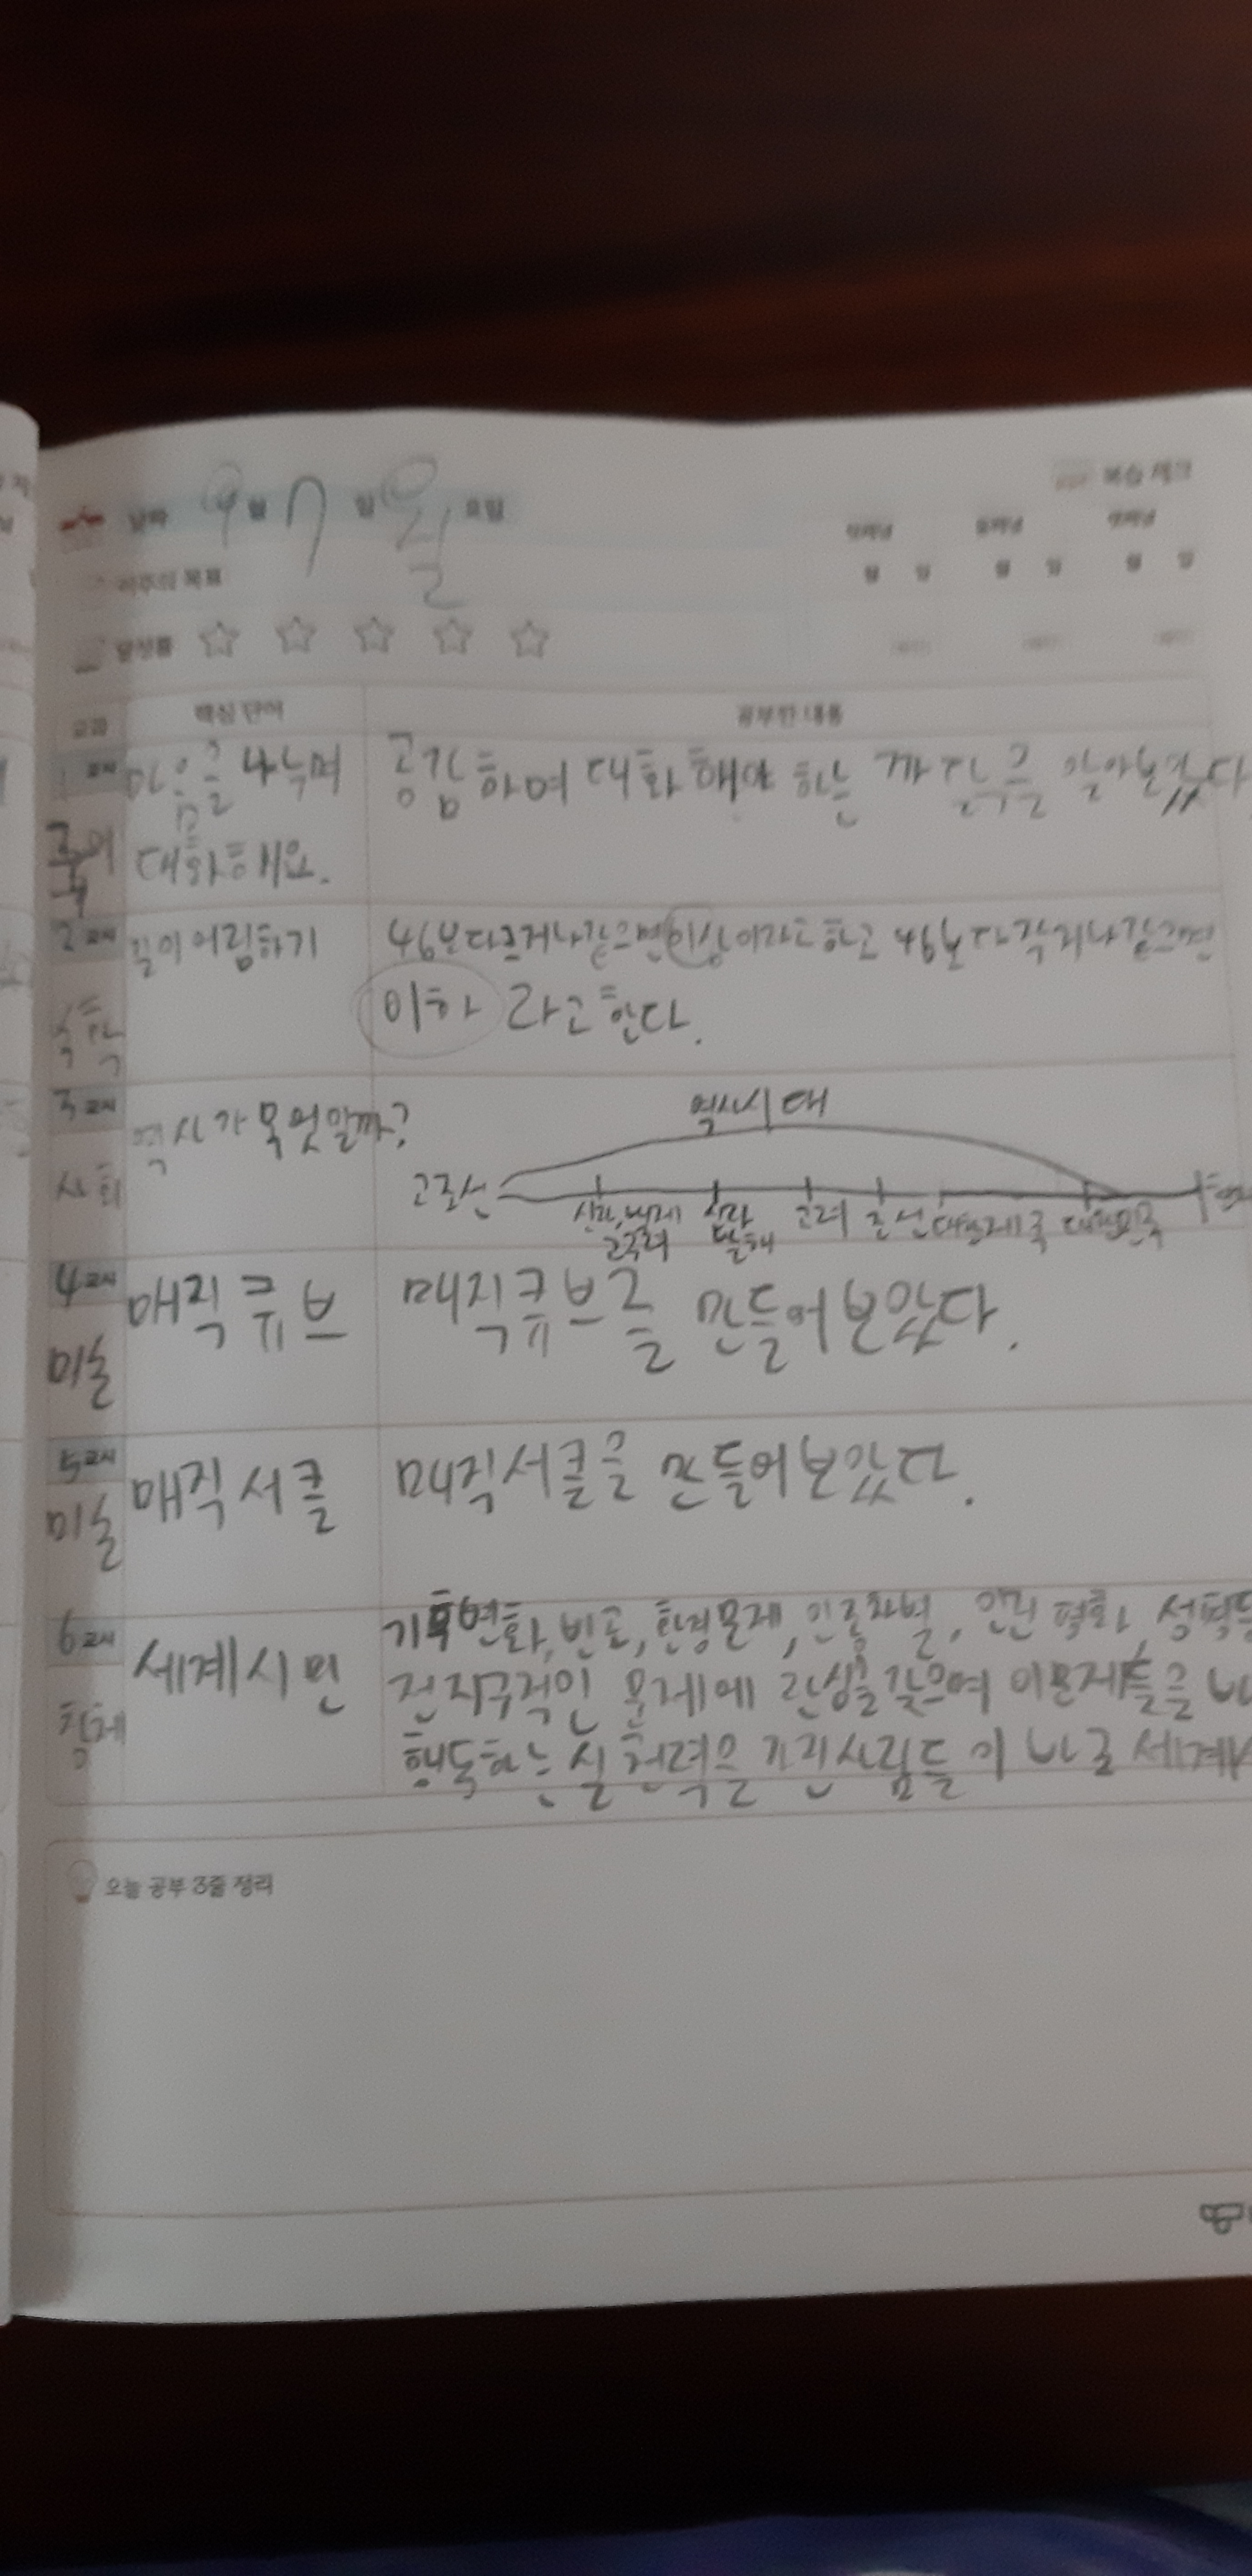 날짜 9월 7일 월요일
복습 체크
이주의 목표
달성률
교과 핵심 단어 공부한 내용
1교시 마음을 나누며 공감하여 대화해야 하는 까닭을 알아보았다
국어 대화해요.
2교시 길이 어림하기 46보다크거나같으면이상이라고하고 46보다작거나같으면
수학 이하 라고 한다.
3교시 역사가 무엇일까?
역사시대
사회 고조선
신라, 백제 신라 고려 조선 대한제국 대한민국
고구려 발해
4교시 매직큐브 매직큐브를 만들어보았다.
미술
5교시 매직서클 매직서클을 만들어보았다.
미술
6교시 세계시민 기후변화, 빈곤, 환경문제, 인종차별,
창체 전지구적인 문제에 관심을갖으며 이문제들을
행동하는실천력을 가진사람들이 바로 세계
오늘 공부 3줄 정리